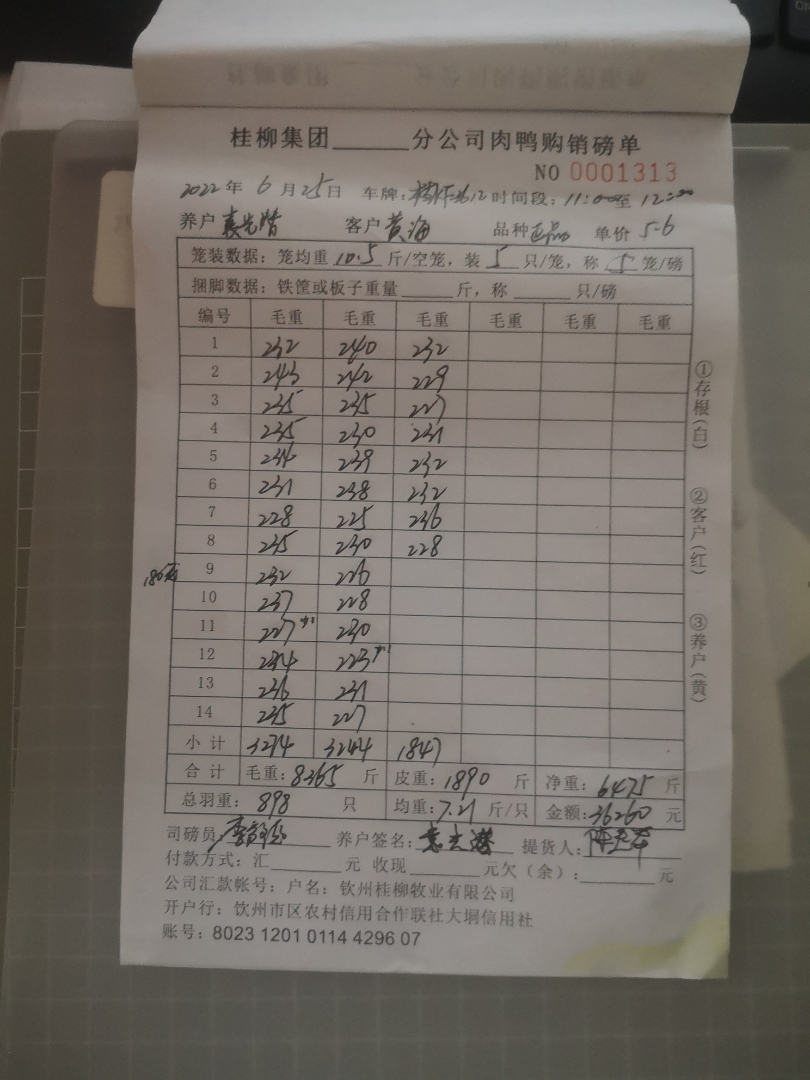 桂柳集团______分公司肉鸭购销磅单
NO 0001313
2022年6月25日 车牌: 时间段:11:00至12:00
养户 客户黄海 品种正品 单价5.6
笼装数据:笼均重10.5斤/空笼,装5只/笼,称5笼/磅
捆脚数据:铁筐或板子重量______斤,称______只/磅
编号 毛重 毛重 毛重 毛重 毛重 毛重
1 232 240 232
2 243 242 229
3 235 235 227
4 235 230 231
5 234 239 232
6 231 238 232
7 228 225 236
8 235 230 228
9 232 226
10 237 228
11 227 230
12 234 223
13 236 231
14 235 227
小计 3274 3244 1847
合计 毛重:8365斤 皮重:1890斤 净重:6475斤
总羽重:898只 均重:7.21斤/只 金额:36260元
司磅员: 养户签名: 提货人:
付款方式:汇______元 收现______元欠(余):______元
公司汇款帐号:户名:钦州桂柳牧业有限公司
开户行:钦州市区农村信用合作联社大垌信用社
账号:8023 1201 0114 4296 07
①存根(白)
②客户(红)
③养户(黄)